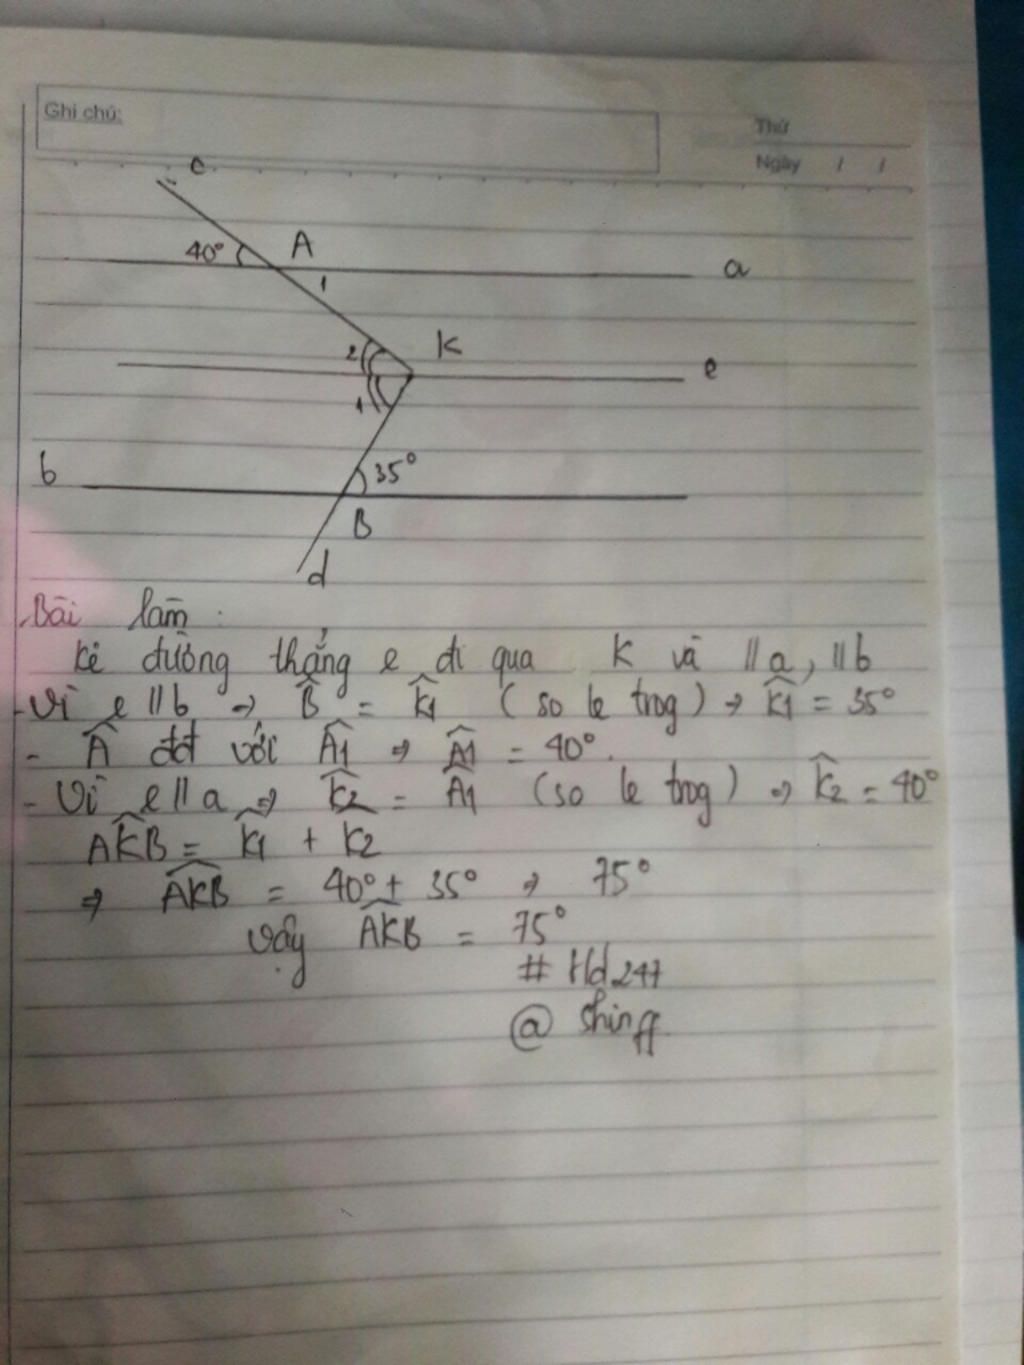 Ghi chú:
Thứ
Ngày / /
c
40° A
a
1
2 K
e
1
b
35°
B
d
Bài làm:
Kẻ đường thẳng e đi qua K và // a, // b
- Vì e // b => B̂ = K̂1 (so le trog) => K̂1 = 35°
- Â đđ với Â1 => Â1 = 40°.
- Vì e // a => K̂2 = Â1 (so le trog) => K̂2 = 40°
AK̂B = K̂1 + K̂2
=> AK̂B = 40° + 35° => 75°
Vậy AK̂B = 75°
# Hd247
@ Shinff